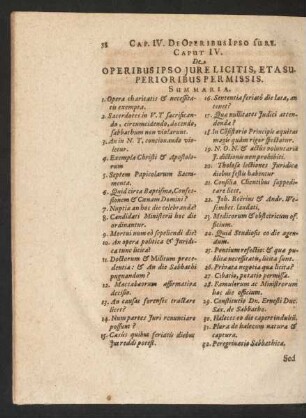 38 CAP. IV. DE OPERIBUS IPSO JURE.
CAPUT IV.
DE
OPERIBUS IPSO JURE LICITIS, ET A SU-
PERIORIBUS PERMISSIS.
SUMMARIA.
1. Opera charitatis & necessita-
tis exempta.
2. Sacerdotes in V. T. sacrifican-
do, circumcidendo, docendo,
Sabbathum non violarunt.
3. An in N. T. concionando vio-
letur.
4. Exempla Christi & Apostolo-
rum
5. Septem Papicolarum Sacra-
menta.
6. Quid circa Baptismum, Confes-
sionem & Cœnam Domini?
7. Nuptiæ an hoc die celebrandæ?
8. Candidati Ministerii hoc die
ordinantur.
9. Mortui num eo sepeliendi die?
10. An opera politica & Juridi-
ca tunc licita?
11. Doctorum & Militum præce-
dentia: & An die Sabbathi
pugnandum?
12. Maccabæorum affirmativa
decisio.
13. An causas forenses tractare
licet?
14. Num partes Juri renunciare
possent?
15. Casus quibus feriatis diebus
Jus reddi potest.
16. Sententia feriati die lata, an
teneat?
17. Qua nullitates Judici atten-
denda?
18. In Clusitario Principe æquitas
magis quàm rigor spectatur.
19. N. O. N. & actus voluntariæ
J. dictionis non prohibiti.
20. Theolog. lectiones Juridica
diebus festis habentur
21. Consilia Clientibus suppedi-
tare licet.
22. Joh. Brivius & Andr. We-
sembec. laudati.
23. Medicorum & obstetricum of-
ficium.
24. Quid Studiosis eo die agen-
dum.
25. Pontium refectio: & quæ pu-
blica necessitatis, licita sunt.
26. Privata negotia qua licita?
27. Citatio, potatio permissa.
28. Famulorum ac Ministrorum
hoc die officium.
29. Constitutio Dn. Ernesti Duc.
Sax. de Sabbatho.
30. Haleces eo die capere indulsit.
31. Plura de halecum natura &
captura.
32. Peregrinatio Sabbathica.
Sed